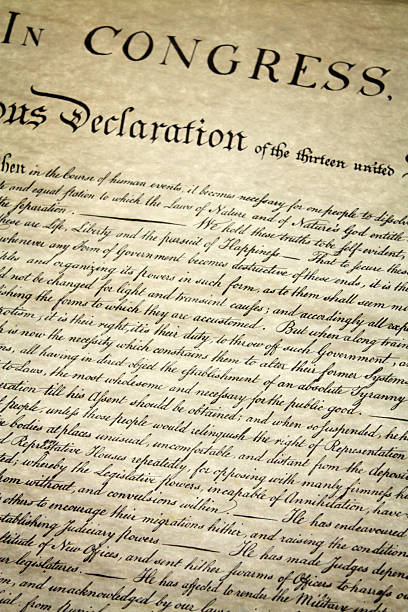 IN CONGRESS,
ous Declaration of the thirteen united
hen in the Course of human events, it becomes necessary for one people to dissolv
and equal station to which the Laws of Nature and of Nature's God entitle
the separation. We hold these truths to be self-evident,
these are Life, Liberty and the pursuit of Happiness — That to secure these
whenever any Form of Government becomes destructive of these ends, it is the
ples and organizing its powers in such form, as to them shall seem mo
ld not be changed for light and transient causes; and accordingly all expe
lishing the forms to which they are accustomed. But when a long train
potism, it is their right, it is their duty, to throw off such Government, a
h is now the necessity which constrains them to alter their former System
ns, all having in direct object the establishment of an absolute Tyranny
to Laws, the most wholesome and necessary for the public good.
ration till his Assent should be obtained; and when so suspended, he h
f people, unless those people would relinquish the right of Representation
e bodies at places unusual, uncomfortable, and distant from the deposit
d Representative Houses repeatedly, for opposing with manly firmness h
ted; whereby the Legislative powers, incapable of Annihilation, have
rom without, and convulsions within. He has endeavoured
others to encourage their migrations hither, and raising the condition
stablishing Judiciary powers. He has made Judges depend
titude of New Offices, and sent hither swarms of Officers to harrass ou
r legislatures. He has affected to render the Military in
n, and unacknowledged by our laws